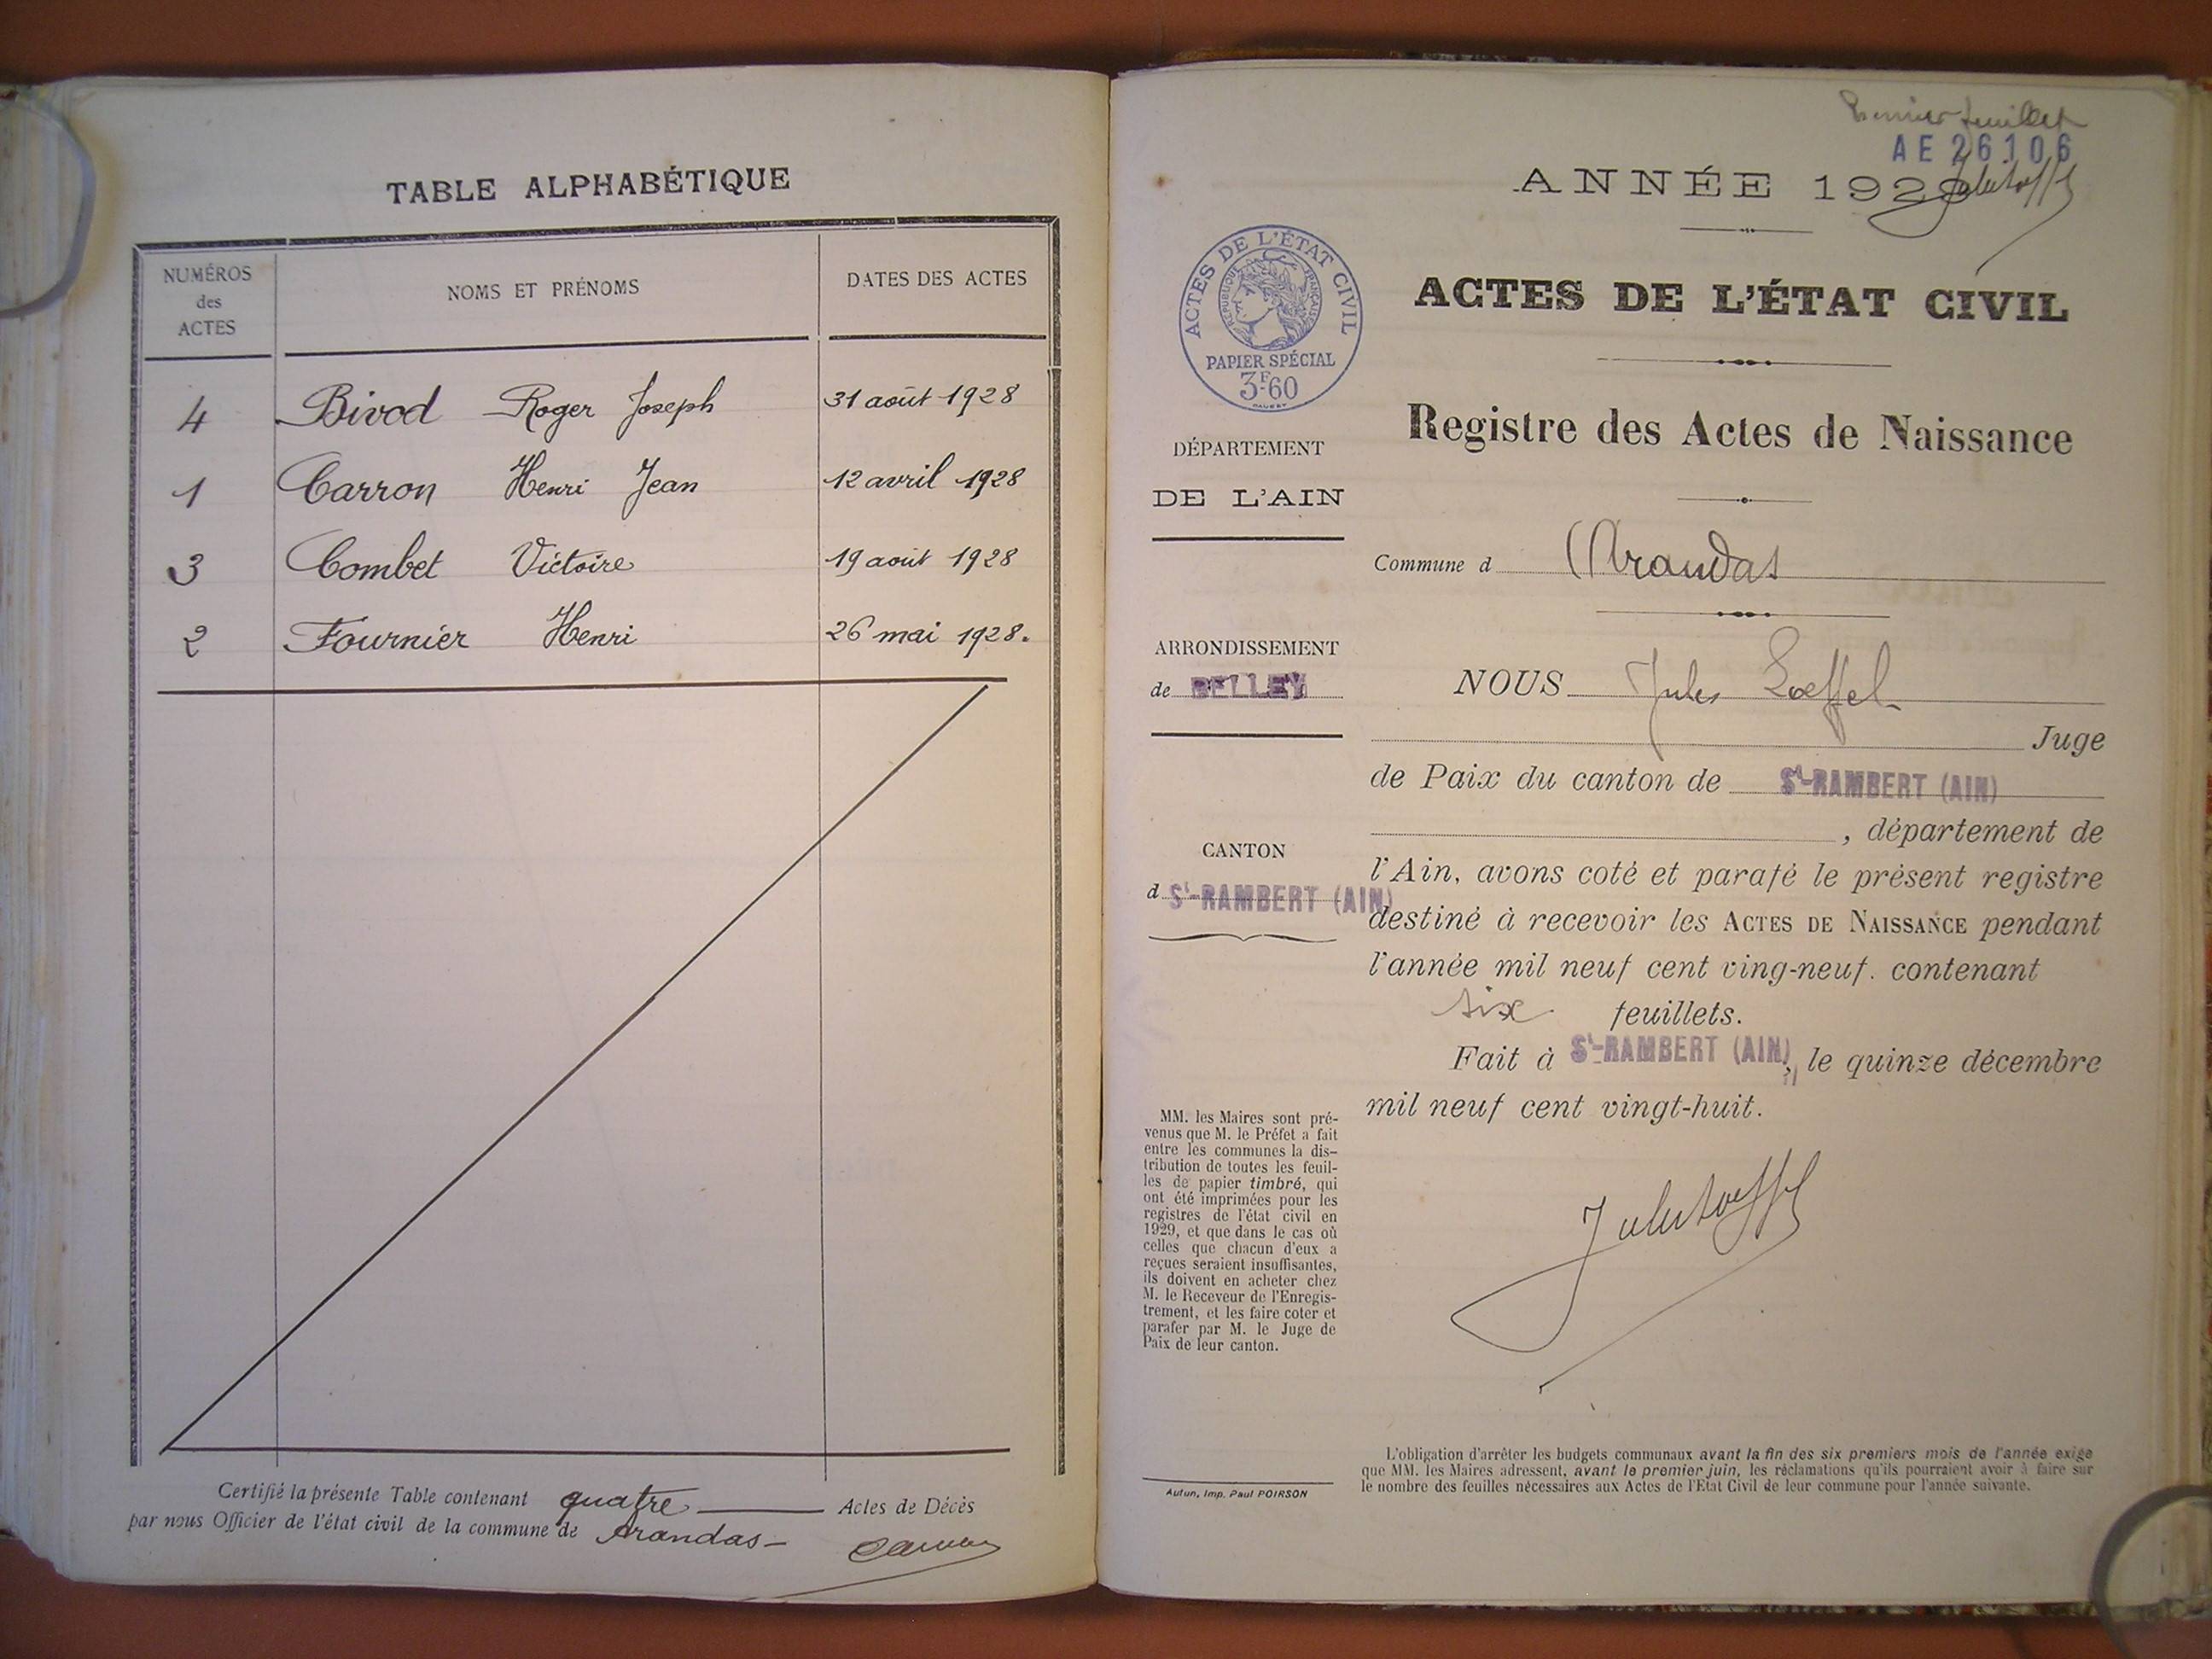 TABLE ALPHABÉTIQUE
NUMÉROS
des
ACTES
NOMS ET PRÉNOMS
DATES DES ACTES
4 Bivod Roger Joseph 31 août 1928
1 Carron Henri Jean 12 avril 1928
3 Combet Victoire 19 août 1928
2 Fournier Henri 26 mai 1928.
Certifié la présente Table contenant quatre Actes de Décès
par nous Officier de l'état civil de la commune de Arandas
feuillet
AE 26106
ANNÉE 1929
ACTES DE L'ÉTAT CIVIL
RÉPUBLIQUE FRANÇAISE
PAPIER SPÉCIAL
3F.60
ACTES DE L'ÉTAT CIVIL
Registre des Actes de Naissance
DÉPARTEMENT
DE L'AIN
Commune d Arandas
ARRONDISSEMENT
de BELLEY
CANTON
d St-RAMBERT (AIN)
NOUS Jules Loeffel
Juge
de Paix du canton de St-RAMBERT (AIN)
, département de
l'Ain, avons coté et parafé le présent registre
destiné à recevoir les ACTES DE NAISSANCE pendant
l'année mil neuf cent ving-neuf. contenant
six feuillets.
Fait à St-RAMBERT (AIN), le quinze décembre
mil neuf cent vingt-huit.
Jules Loeffel
MM. les Maires sont pré-
venus que M. le Préfet a fait
entre les communes la dis-
tribution de toutes les feuil-
les de papier timbré, qui
ont été imprimées pour les
registres de l'état civil en
1929, et que dans le cas où
celles que chacun d'eux a
reçues seraient insuffisantes,
ils doivent en acheter chez
M. le Receveur de l'Enregis-
trement, et les faire coter et
parafer par M. le Juge de
Paix de leur canton.
Autun, Imp. Paul POIRSON
L'obligation d'arrêter les budgets communaux avant la fin des six premiers mois de l'année exige
que MM. les Maires adressent, avant le premier juin, les réclamations qu'ils pourraient avoir à faire sur
le nombre des feuilles nécessaires aux Actes de l'Etat Civil de leur commune pour l'année suivante.